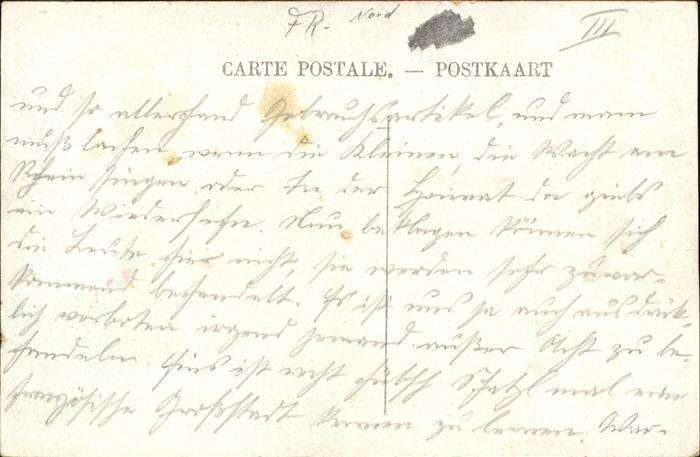 FR. Nord
III
CARTE POSTALE. — POSTKAART
und so allerhand Gebrauchsartikel, und man
muß lachen wenn die Kleinen, die Wacht am
Rhein singen oder In der Heimat da giebts
ein Wiedersehn. Nun beklagen können sich
die Leute hier nicht, sie werden sehr zuvor-
kommend behandelt. Es ist uns ja auch ausdrück-
lich verboten irgend jemand außer Acht zu be-
handeln. Eins ist recht hübsch Schatzl mal eine
französische Großstadt kennen zu lernen. War-